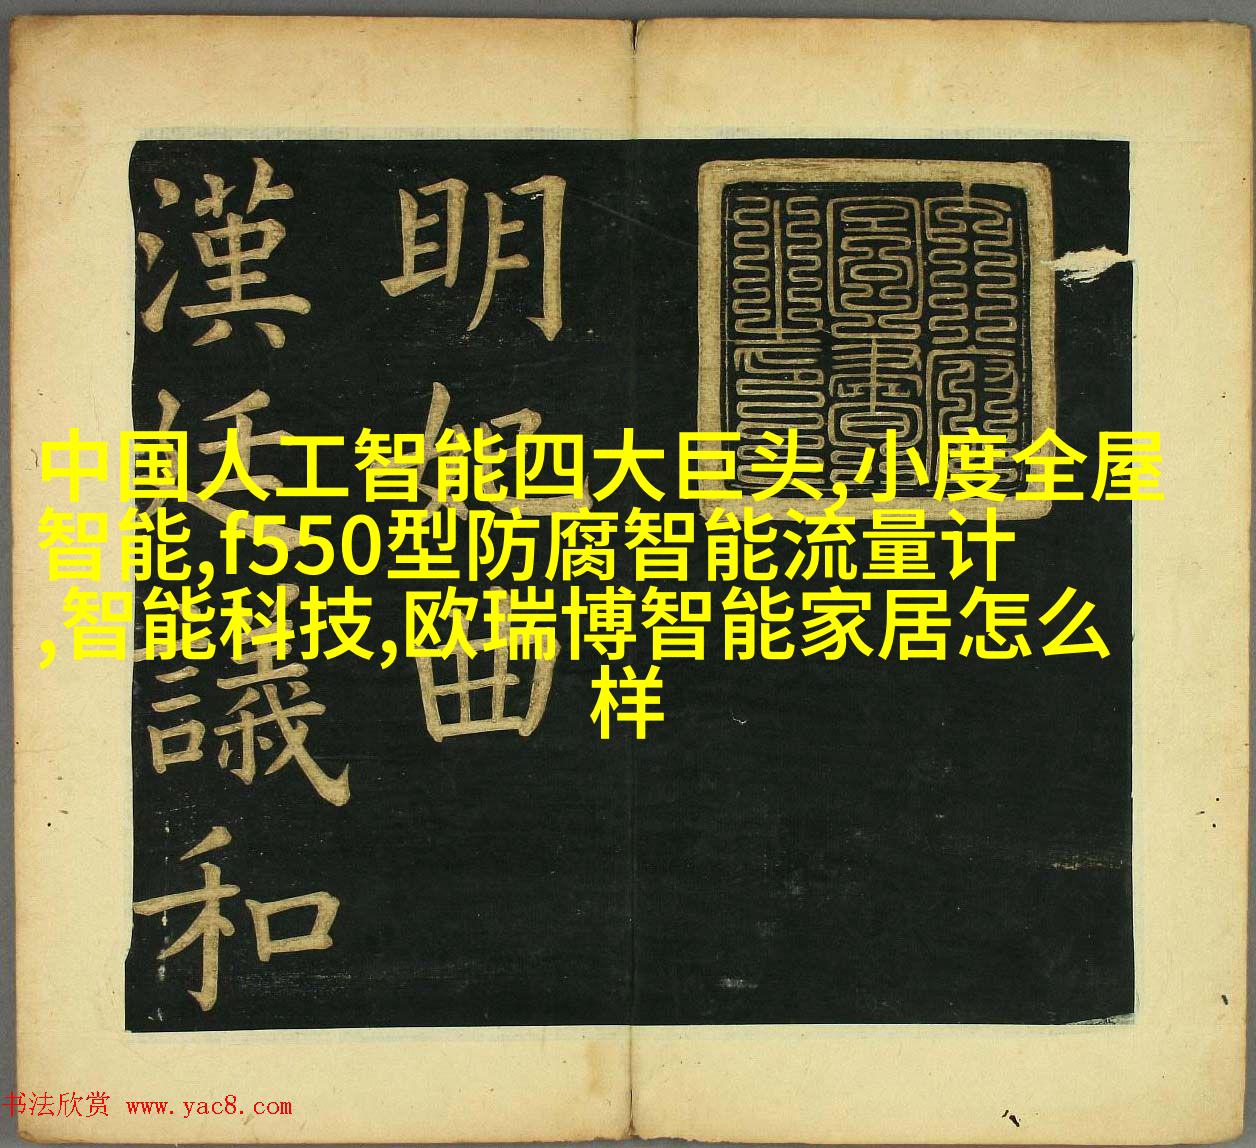 明妃曲
漢廷議和
中国人工智能四大巨头,小度全屋
智能,f550型防腐智能流量计
,智能科技,欧瑞博智能家居怎么
样
书法欣赏 www.yac8.com